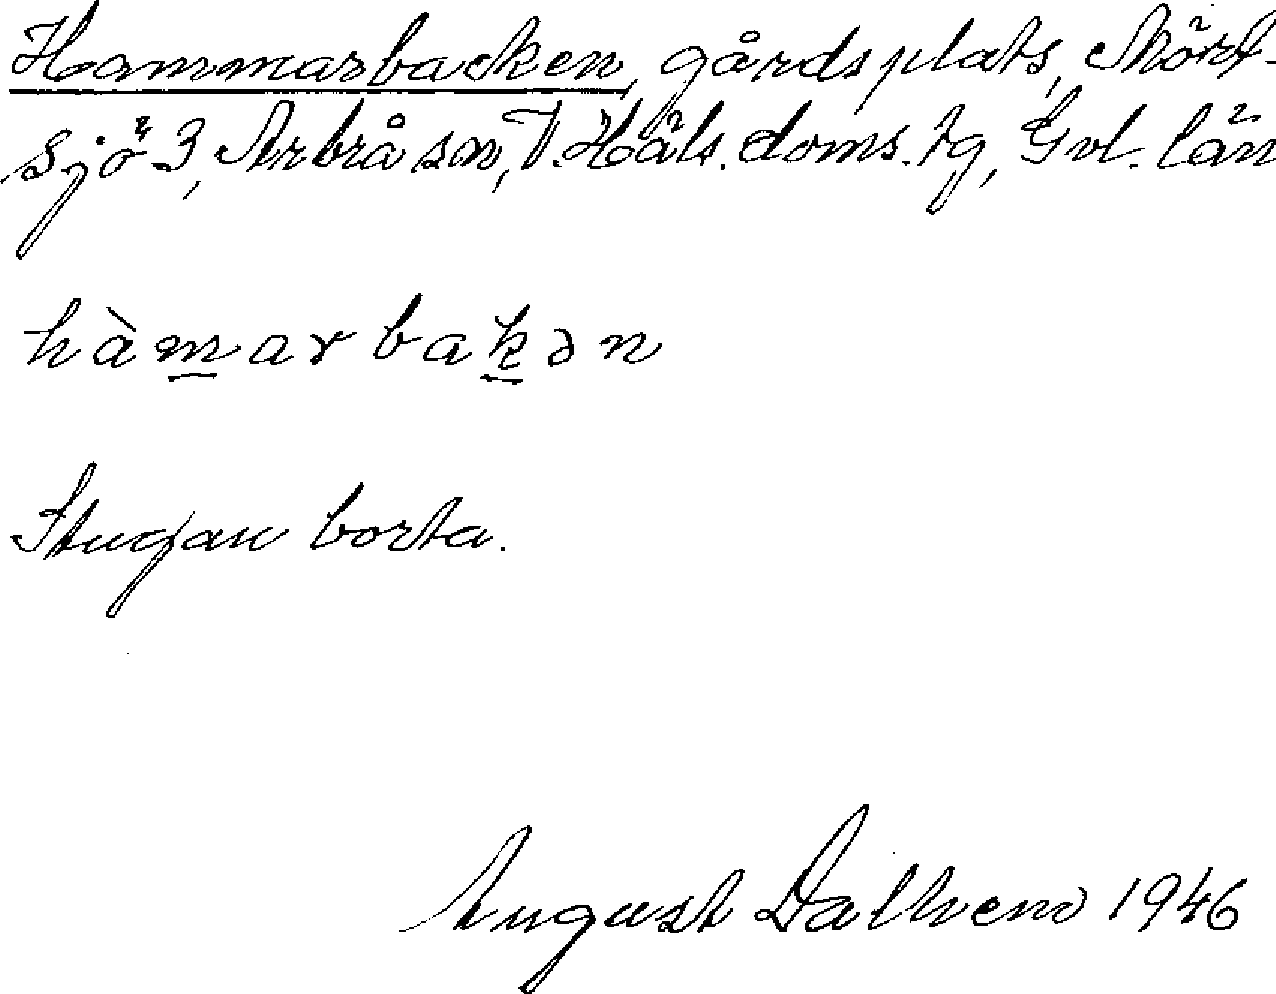 Hammarbacken, gårdsplats, Mört-
sjö 3, Arbrå sn, V. Häls. doms. tg, Gvl. län
hàm̲arbak̲ən
Stugan borta.
August Dalhem 1946